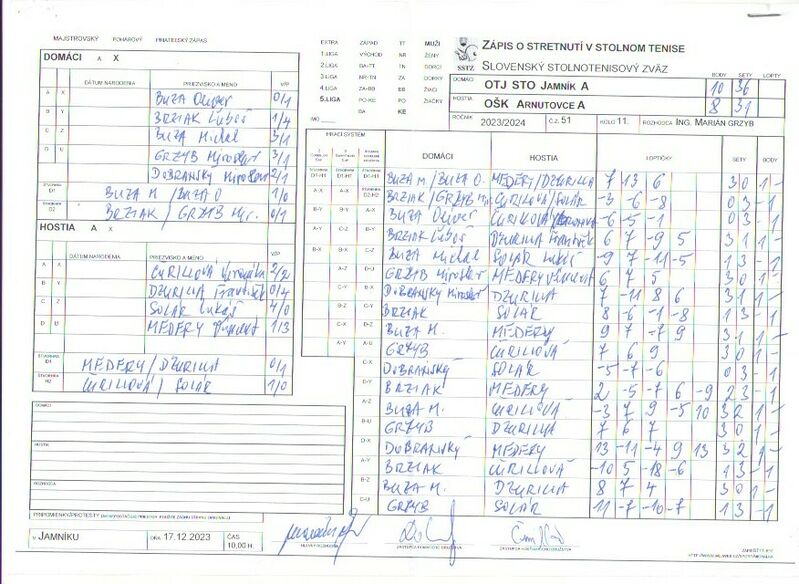 MAJSTROVSKÝ POHÁROVÝ PRIATEĽSKÝ ZÁPAS
DOMÁCI A X
DÁTUM NARODENIA PRIEZVISKO A MENO V/P
A X BUZA Oliver 0/1
B Y BRZIAK Ľuboš 1/4
C Z BUZA Michal 3/1
D U GRZYB Miroslav 3/1
DOBRANSKÝ Miroslav 2/1
ŠTVORHRA D1 BUZA M / BUZA O 1/0
ŠTVORHRA D2 BRZIAK / GRZYB Mir. 0/1
HOSTIA A X
DÁTUM NARODENIA PRIEZVISKO A MENO V/P
A X ČURILLOVÁ Veronika 2/2
B Y DŽURILLA František 0/4
C Z SOLÁR Lukáš 4/0
D U MEDERY 1/3
ŠTVORHRA H1 MEDERY / DŽURILLA 0/1
ŠTVORHRA H2 ČURILLOVÁ / SOLÁR 1/0
DOMÁCI
HOSTIA
ROZHODCA
V JAMNÍKU DŇA 17.12.2023 ČAS 10,00 H.
EXTRA ZÁPAD TT MUŽI
1.LIGA VÝCHOD NR ŽENY
2.LIGA BA-TT TN DORCI
3.LIGA NR-TN ZA DORKY
4.LIGA ZA-BB BB ŽIACI
5.LIGA PO-KE PO ŽIAČKY
BA KE
SSTZ
ZÁPIS O STRETNUTÍ V STOLNOM TENISE
SLOVENSKÝ STOLNOTENISOVÝ ZVÄZ
BODY SETY LOPTY
DOMÁCI OTJ STO JAMNÍK A 10 36
HOSTIA OŠK ARNUTOVCE A 8 31
ROČNÍK 2023/2024 Č.Z. 51 KOLO 11. ROZHODCA ING. MARIÁN GRZYB
HRACÍ SYSTÉM DOMÁCI HOSTIA LOPTIČKY SETY BODY
BUZA M / BUZA O. MEDERY / DŽURILLA 7 13 6 3 0 1 -
BRZIAK / GRZYB ČURILLOVÁ / SOLÁR -3 -6 -8 0 3 - 1
BUZA Oliver ČURILLOVÁ -6 -5 -1 0 3 - 1
BRZIAK Ľuboš DŽURILLA František 6 7 -9 5 3 1 1 -
BUZA Michal SOLÁR Lukáš -9 7 -11 -5 1 3 - 1
GRZYB Miroslav MEDERY 6 7 5 3 0 1 -
DOBRANSKÝ Miroslav DŽURILLA 7 -11 8 6 3 1 1 -
BRZIAK SOLÁR 8 -6 -1 -8 1 3 - 1
BUZA M. MEDERY 9 7 -7 9 3 1 1 -
GRZYB ČURILLOVÁ 7 6 9 3 0 1 -
DOBRANSKÝ SOLÁR -5 -7 -6 0 3 - 1
BRZIAK MEDERY 2 -5 -7 6 -9 2 3 - 1
BUZA M. ČURILLOVÁ -3 7 9 -5 10 3 2 1 -
GRZYB DŽURILLA 7 6 7 3 0 1 -
DOBRANSKÝ MEDERY 13 -11 -4 9 13 3 2 1 -
BRZIAK ČURILLOVÁ -10 5 -18 -6 1 3 - 1
BUZA M. DŽURILLA 8 7 4 3 0 1 -
GRZYB SOLÁR 11 -7 -10 -7 1 3 - 1